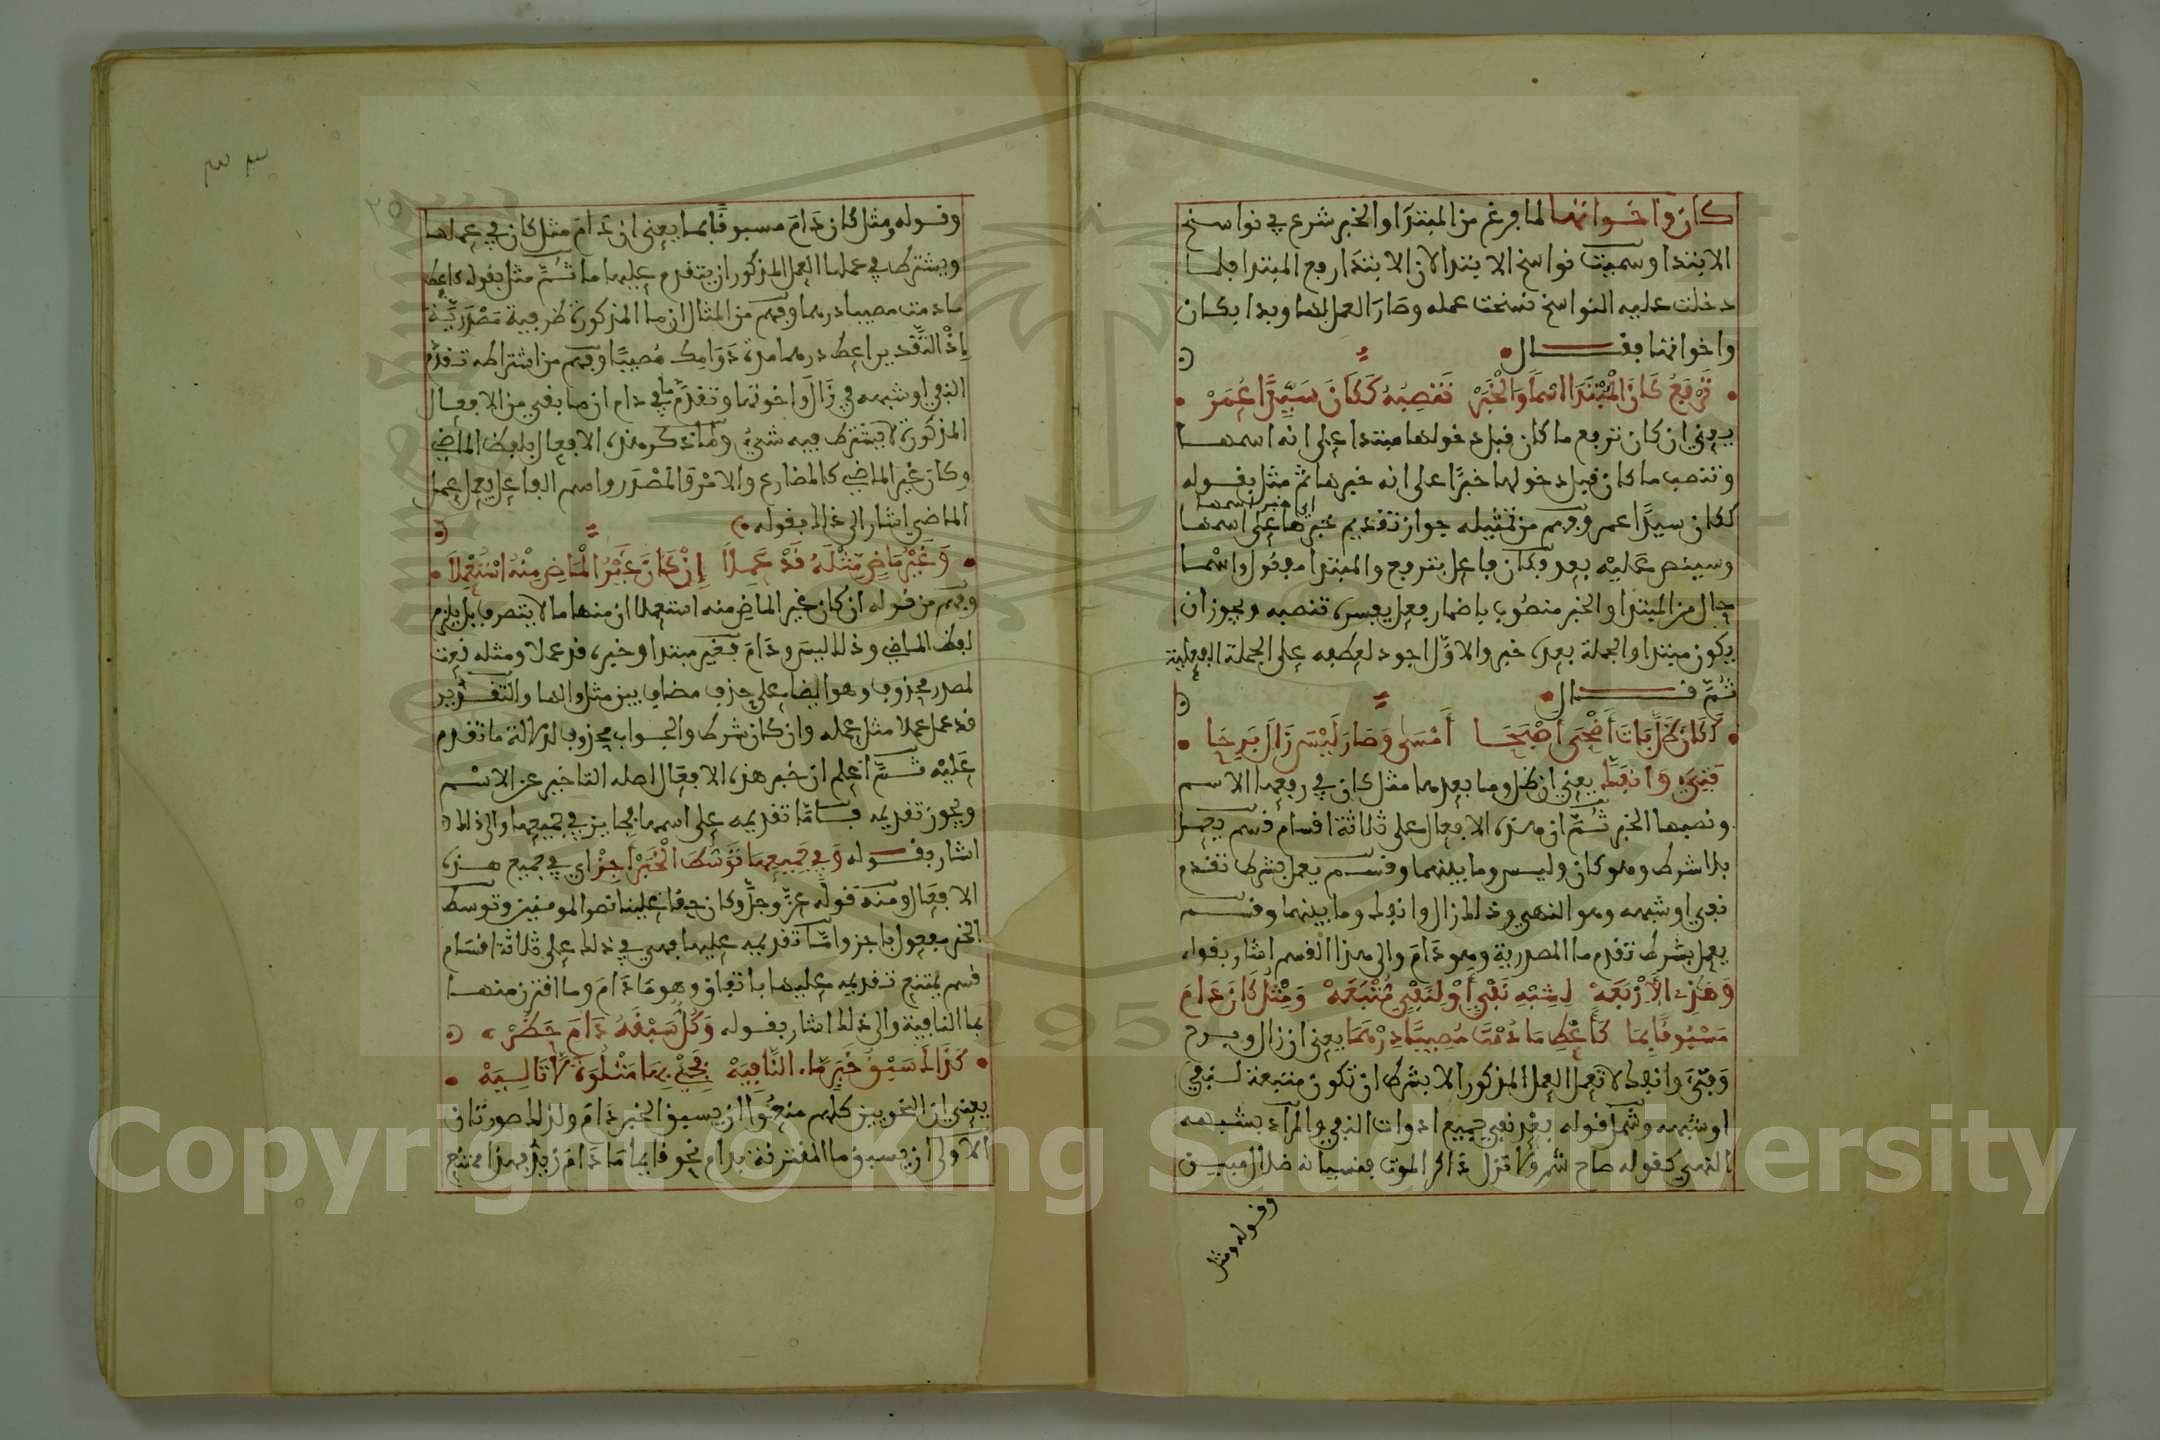 كان واخواتها لما فرغ من المبتدا والخبر شرع في نواسخ
الابتدا وسميت نواسخ الابتدا لان الابتدا رفع المبتدا فلما
دخلت عليه النواسخ نسخت عمله وصار العمل لها وبدا بكان
واخواتها فقال
تَرْفَعُ كَانَ الْمُبْتَدَا اسْمًا وَالْخَبَرْ تَنْصِبُهُ كَكَانَ سَيِّدًا عُمَرْ
يعني ان كان ترفع ما كان قبل دخولها مبتدا على انه اسمها
وتنصب ما كان قبل دخولها خبرًا على انه خبرها ثم مثل بقوله
ككان سيدًا عمر وفهم من تمثيله جواز تقديم خبرها على اسمها
اي خبر اسمها
وسينص عليه بعد فكان فاعل بترفع والمبتدا مفعول واسما
حال من المبتدا والخبر منصوب باضمار فعل يفسره تنصبه ويجوز ان
يكون مبتدا والجملة بعده خبر والاول اجود لعطفه على الجملة الفعلية
ثُمَّ قال
كَكَانَ ظَلَّ بَاتَ أَضْحَى أَصْبَحَا أَمْسَى وَصَارَ لَيْسَ زَالَ بَرِحَا
فَتِىءَ وَانفَكَّ يعني ان ظل وما بعدها مثل كان في رفعها الاسم
ونصبها الخبر ثُمَّ ان هذه الافعال على ثلاثة اقسام قسم يعمل
بلا شرط وهو كان وليس وما بينهما وقسم يعمل بشرط تقدم
نفي او شبهه وهو النهي وذلك زال وانفك وما بينهما وقسم
يعمل بشرط تقدم ما المصدرية وهو دَامَ والى هذا القسم اشار بقوله
وَهَذِي الأَرْبَعَهْ لِشِبْهِ نَفْيٍ أَوْ لِنَفْيٍ مُتْبَعَهْ وَمِثْلُ كَانَ دَامَ
مَسْبُوقًا بِمَا كَأَعْطِ مَا دُمْتَ مُصِيبًا دِرْهَمَا يعني ان زال وبرح
وَفَتِىءَ وانفك لا تعمل العمل المذكور الا بشرط ان تكون متبعة لنفي
او شبهه وشمل قوله بعد نفي جميع ادوات النفي والمراد بشبهه
النهي كقوله صاح شمر ولا تزل ذاكر الموت فنسيانه ضلال مبين
وقوله ومثل
وقوله ومثل كان دَامَ مسبوقًا بما يعني ان دَامَ مثل كان في عملها
ويشترط في عملها العمل المذكور ان يتقدم عليها ما ثُمَّ مثل بقوله كاعط
ما دمت مصيبا درهما وفهم من المثال ان ما المذكورة ظرفية مَصْدَرِيَّة
إِذْ التَّقدير اعط درهما مدة دَوَامِك مُصيبًا وفهم من اشتراطه تقدُّم
النفي او شبهه في زَالَ واخوتها وتقدم ما في دام ان ما بقي من الافعال
المذكورة لا يشترط فيه شيء ولما ذكر هذه الافعال بلفظ الماضي
وكان غير الماضي كالمضارع والامر والمَصْدَر واسم الفاعل يعمل عمل
الماضي اشار الى ذلك بقوله
وَغَيْرُ مَاضٍ مِثْلَهُ قَدْ عَمِلاَ إِنْ كَانَ غَيْرُ الْمَاضِ مِنْهُ اسْتُعْمِلاَ
وفهم من قوله ان كان غير الماض منه استعملا ان منها ما لا يتصرف بل يلزم
لفظ الماضي وذلك ليس ودَامَ فغير مبتدا وخبره قد عملا ومثله نعت
لمصدر محذوف وهو ايضا على حذف مضاف بين مثل والها والتقدير
قد عمل عملا مثل عمله وان كان شرط والجواب محذوف لدلالة ما تقدم
عَلَيْه ثُمَّ اعلم ان خبر هذه الافعال اصله التاخير عن الاسم
ويجوز تقديمه فاما تقديمه على اسمها فجايز في جميعها والى ذلك
اشار بقوله وَفِي جَمِيعِهَا تَوَسُّطَ الْخَبَرْ أَجِزْ اي في جميع هذه
الافعال ومنه قوله عزّ وجلّ وكان حقا علينا نصر المومنين وتوسط
الخبر مفعول باجز وامّا تقديمه عليها فهي في ذلك على ثلاثة اقسام
قسم يمتنع تقديمه عليها باتفاق وهو مَا دَامَ وما اقترن منها
بما النافية والى ذلك اشار بقوله وَكُلٌّ سَبْقَهُ دَامَ حَظَرْ
كَذَاكَ سَبْقُ خَبَرٍ مَا النَّافِيَهْ فَجِئْ بِهَا مَتْلُوَّةً لاَ تَالِيَهْ
يعني ان النحويين كلهم منعُوا ان يسبق الخبر دَامَ ولذلك صورتان
الاُولى ان يسبق ما المقترنة بدام نحو قايما مَا دَامَ زيد فهذا ممتنع
٢٥
Copyright © King Saud University
1957